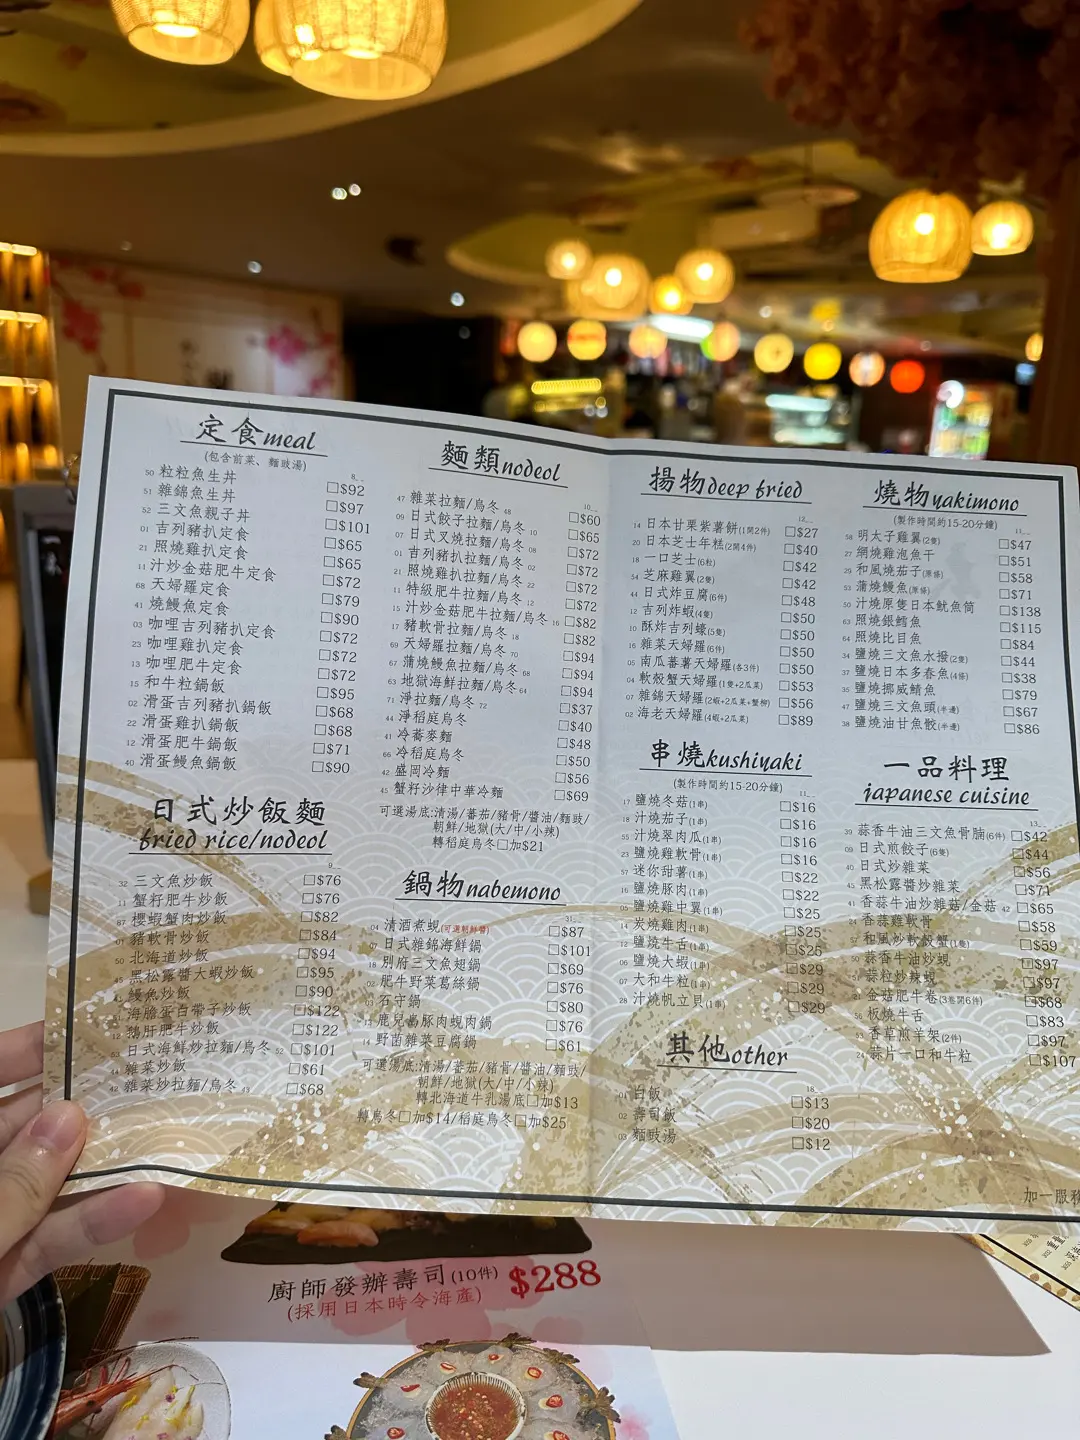 定食meal
(包含前菜、麵豉湯)
8
50 粒粒魚生丼 □$92
51 雜錦魚生丼 □$97
52 三文魚親子丼 □$101
01 吉列豬扒定食 □$65
21 照燒雞扒定食 □$65
11 汁炒金菇肥牛定食 □$72
68 天婦羅定食 □$79
41 燒鰻魚定食 □$90
03 咖哩吉列豬扒定食 □$72
23 咖哩雞扒定食 □$72
13 咖哩肥牛定食 □$72
15 和牛粒鍋飯 □$95
02 滑蛋吉列豬扒鍋飯 □$68
22 滑蛋雞扒鍋飯 □$68
12 滑蛋肥牛鍋飯 □$71
40 滑蛋鰻魚鍋飯 □$90
日式炒飯麵
fried rice/nodeol
9
32 三文魚炒飯 □$76
11 蟹籽肥牛炒飯 □$76
87 櫻蝦蟹肉炒飯 □$82
01 豬軟骨炒飯 □$84
50 北海道炒飯 □$94
45 黑松露醬大蝦炒飯 □$95
鰻魚炒飯 □$90
海膽蛋白帶子炒飯 □$122
12 鵝肝肥牛炒飯 □$122
53 日式海鮮炒拉麵/烏冬 52 □$101
44 雜菜炒飯 □$61
42 雜菜炒拉麵/烏冬 43 □$68
麵類nodeol
10
47 雜菜拉麵/烏冬 48 □$60
09 日式餃子拉麵/烏冬 10 □$65
07 日式叉燒拉麵/烏冬 08 □$72
01 吉列豬扒拉麵/烏冬 02 □$72
21 照燒雞扒拉麵/烏冬 22 □$72
11 特級肥牛拉麵/烏冬 12 □$72
15 汁炒金菇肥牛拉麵/烏冬 16 □$82
17 豬軟骨拉麵/烏冬 18 □$82
69 天婦羅拉麵/烏冬 70 □$94
67 蒲燒鰻魚拉麵/烏冬 68 □$94
63 地獄海鮮拉麵/烏冬 64 □$94
71 淨拉麵/烏冬 72 □$37
44 淨稻庭烏冬 □$40
41 冷蕎麥麵 □$48
66 冷稻庭烏冬 □$50
42 盛岡冷麵 □$56
45 蟹籽沙律中華冷麵 □$69
可選湯底:清湯/蕃茄/豬骨/醬油/麵豉/
朝鮮/地獄(大/中/小辣)
轉稻庭烏冬□加$21
鍋物nabemono
31
04 清酒煮蜆(可選朝鮮醬) □$87
07 日式雜錦海鮮鍋 □$101
18 別府三文魚翅鍋 □$69
02 肥牛野菜葛絲鍋 □$76
03 石守鍋 □$80
鹿兒島豚肉蜆肉鍋 □$76
14 野菌雜菜豆腐鍋 □$61
可選湯底:清湯/蕃茄/豬骨/醬油/麵豉/
朝鮮/地獄(大/中/小辣)
轉北海道牛乳湯底□加$13
轉烏冬□加$14/稻庭烏冬□加$25
揚物deep fried
12
14 日本甘栗紫薯餅(1開2件) □$27
20 日本芝士年糕(2開4件) □$40
18 一口芝士(6粒) □$42
54 芝麻雞翼(2隻) □$42
44 日式炸豆腐(6件) □$48
12 吉列炸蝦(4隻) □$50
10 酥炸吉列蠔(5隻) □$50
16 雜菜天婦羅(6件) □$50
05 南瓜蕃薯天婦羅(各3件) □$50
04 軟殼蟹天婦羅(1隻+2瓜菜) □$53
07 雜錦天婦羅(2蝦+2瓜菜+蟹柳) □$56
02 海老天婦羅(4蝦+2瓜菜) □$89
串燒kushiyaki
(製作時間約15-20分鐘)
11
17 鹽燒冬菇(1串) □$16
18 汁燒茄子(1串) □$16
15 汁燒翠肉瓜(1串) □$16
23 鹽燒雞軟骨(1串) □$16
57 迷你甜薯(1串) □$22
16 鹽燒豚肉(1串) □$22
05 鹽燒雞中翼(1串) □$25
14 炭燒雞肉(1串) □$25
12 鹽燒牛舌(1串) □$26
06 鹽燒大蝦(1串) □$29
07 大和牛粒(1串) □$29
28 汁燒帆立貝(1串) □$29
其他other
18
01 白飯 □$13
02 壽司飯 □$20
03 麵豉湯 □$12
燒物yakimono
(製作時間約15-20分鐘)
11
58 明太子雞翼(2隻) □$47
27 網燒雞泡魚干 □$51
29 和風燒茄子(原條) □$58
53 蒲燒鰻魚(原條) □$71
50 汁燒原隻日本魷魚筒 □$138
63 照燒銀鱈魚 □$115
64 照燒比目魚 □$84
34 鹽燒三文魚水撥(2隻) □$44
37 鹽燒日本多春魚(4條) □$38
35 鹽燒挪威鯖魚 □$79
47 鹽燒三文魚頭(半邊) □$67
38 鹽燒油甘魚骹(半邊) □$86
一品料理
japanese cuisine
13
39 蒜香牛油三文魚骨腩(6件) □$42
09 日式煎餃子(6隻) □$44
40 日式炒雜菜 □$56
45 黑松露醬炒雜菜 □$71
41 香蒜牛油炒雜菇/金菇 42 □$65
24 香蒜雞軟骨 □$58
57 和風炒軟殼蟹(1隻) □$59
50 蒜香牛油炒蜆 □$97
蒜粒炒辣蜆 □$97
21 金菇肥牛卷(3卷開6件) □$68
56 板燒牛舌 □$83
53 香草煎羊架(2件) □$97
24 蒜片一口和牛粒 □$107
加一服務
廚師發辦壽司(10件) $288
(採用日本時令海產)